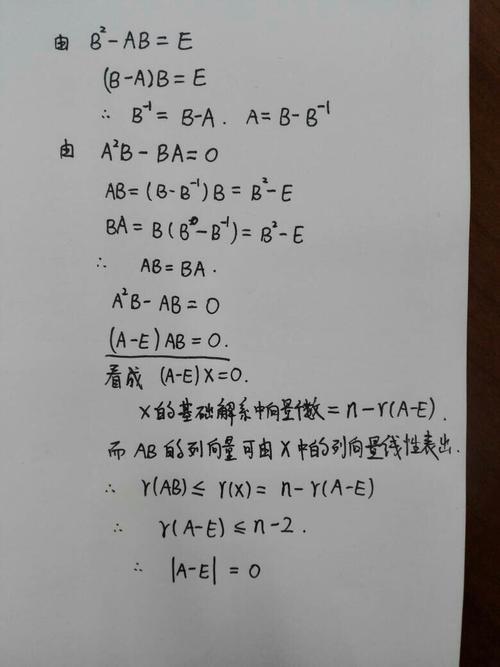 由 B²-AB=E
(B-A)B=E
∴ B⁻¹=B-A. A=B-B⁻¹
由 A²B-BA=0
AB=(B-B⁻¹)B=B²-E
BA=B(B-B⁻¹)=B²-E
∴ AB=BA.
A²B-AB=0
(A-E)AB=0.
看成 (A-E)X=0.
X的基础解系中向量个数=n-r(A-E).
而AB的列向量可由X中的列向量线性表出.
∴ r(AB)≤r(X)=n-r(A-E)
∴ r(A-E)≤n-2.
∴ |A-E|=0